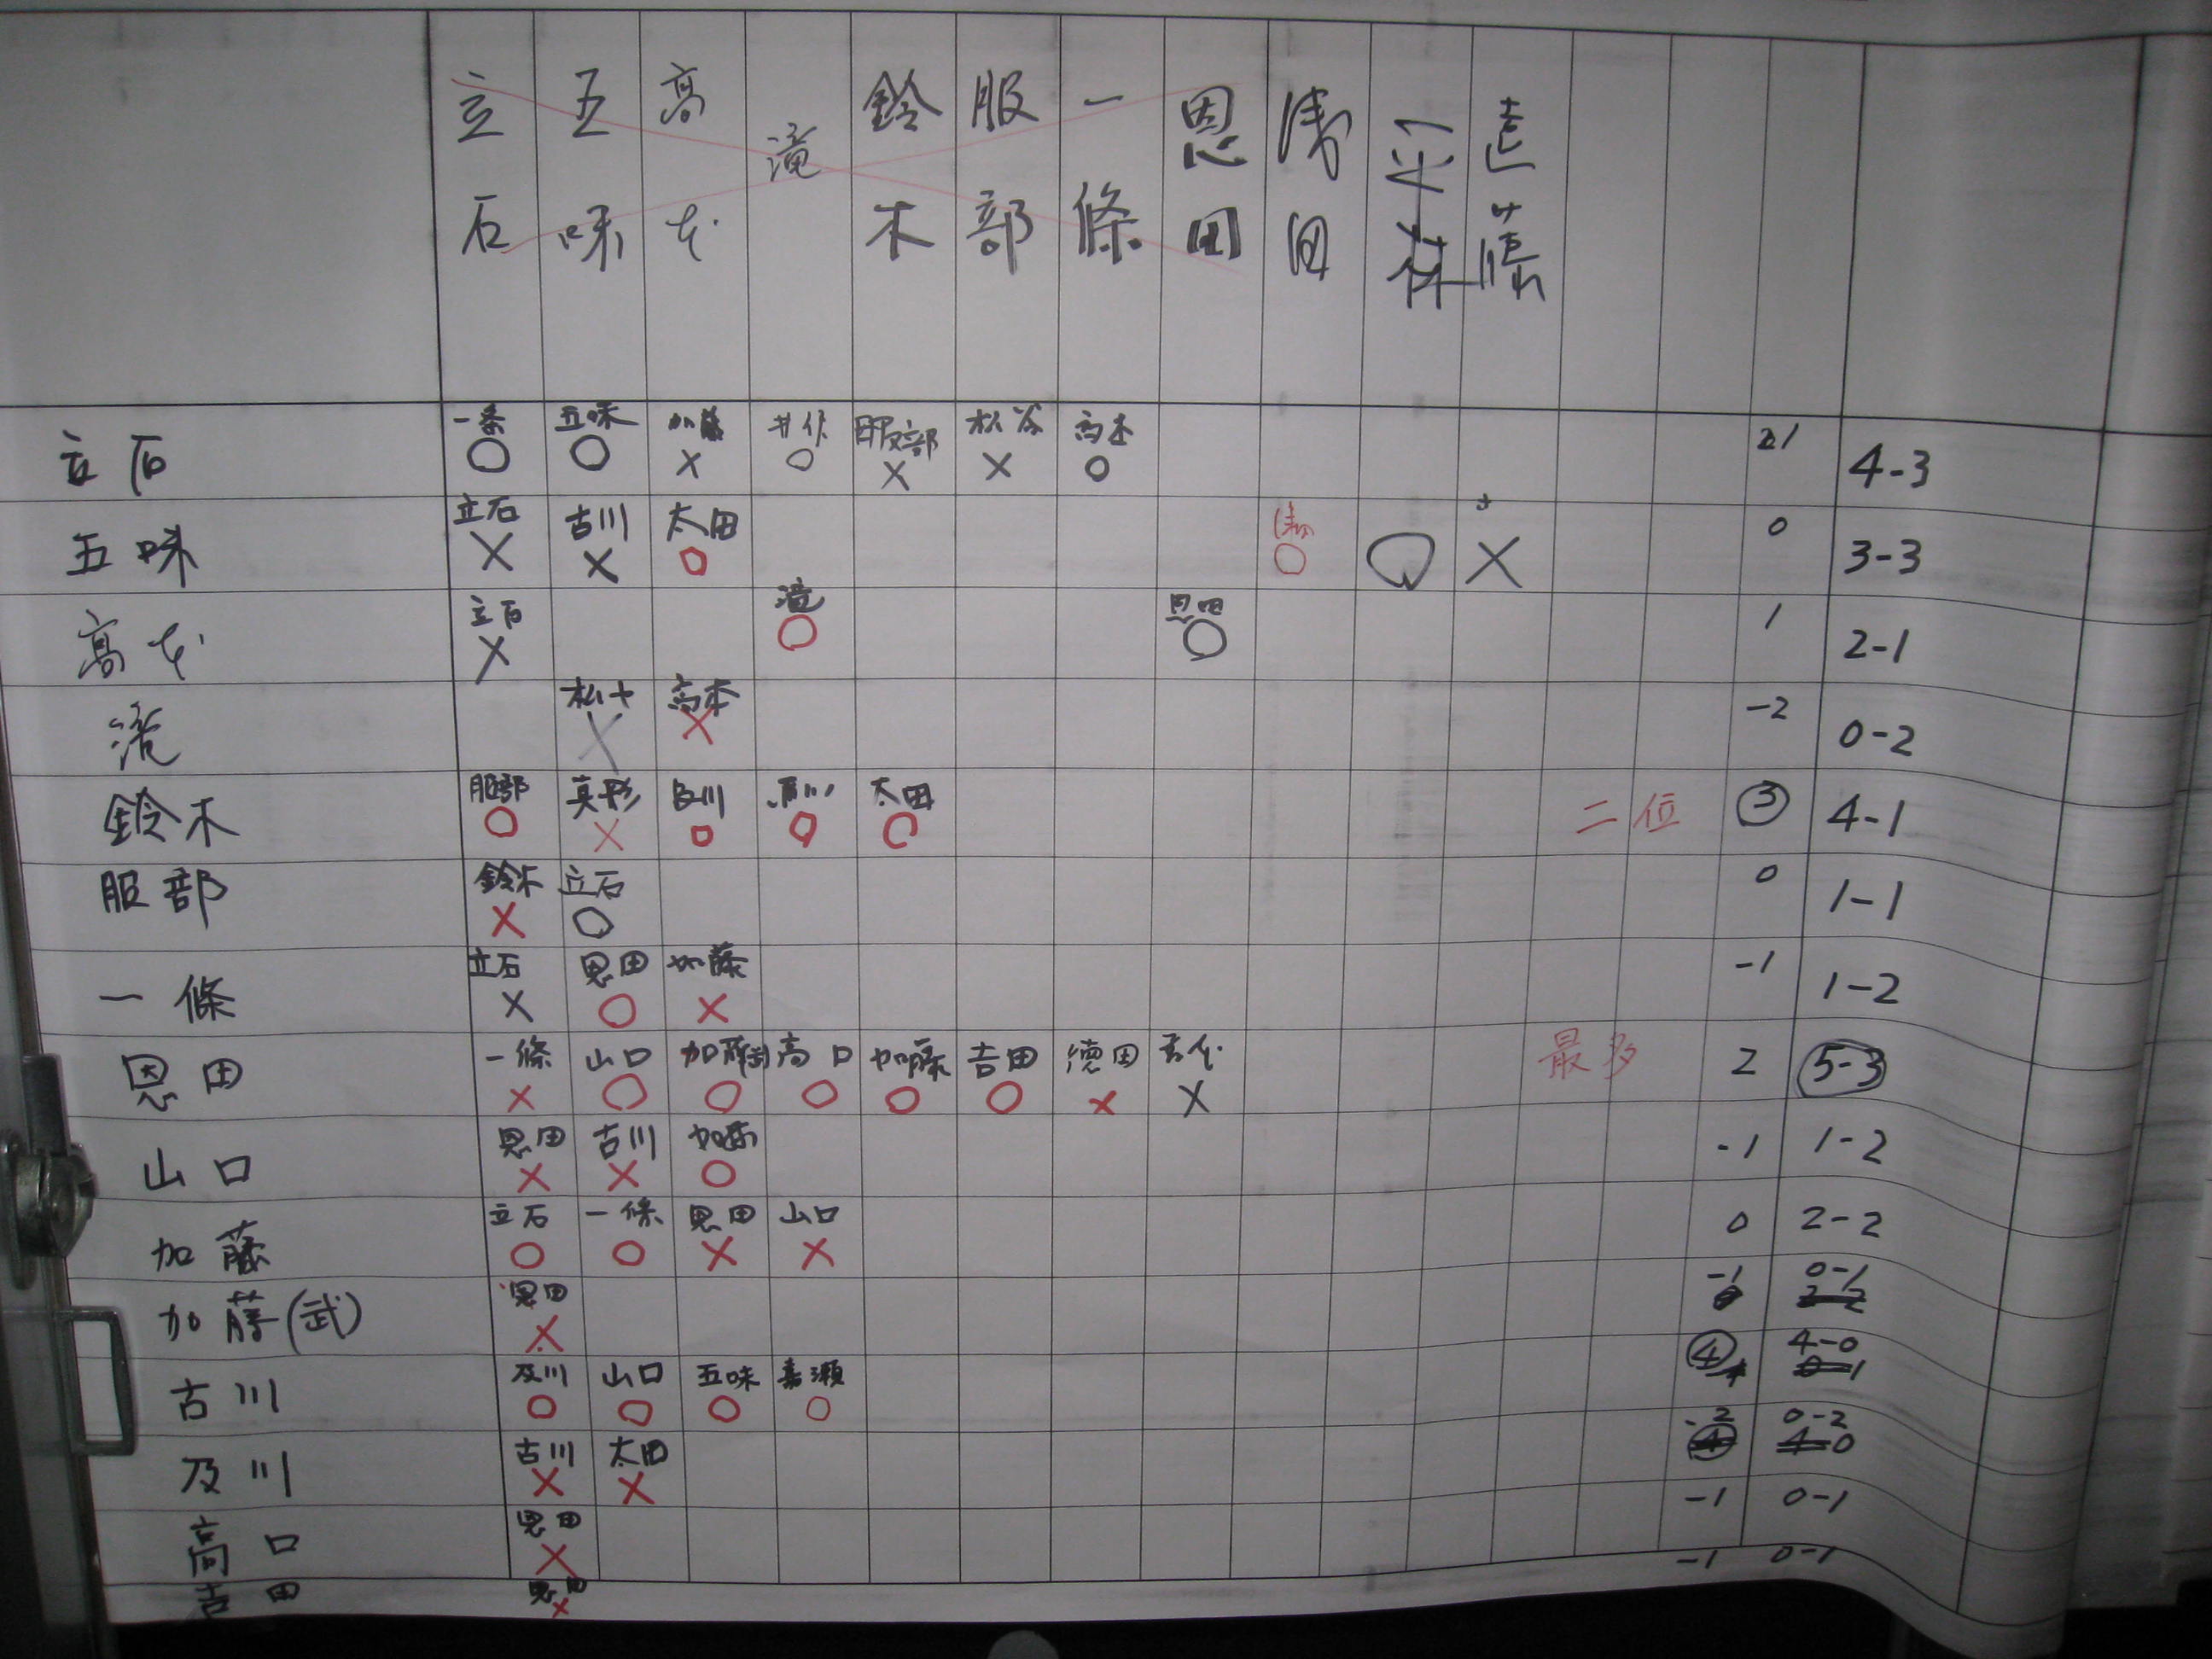 立石 五味 高本 滝 鈴木 服部 一條 恩田 遠藤
一条 五味 加藤 服部 松谷 高本
立石 ○ ○ × ○ × × ○ 4-3
立石 古川 太田
五味 × × ○ ○ ○ × 0 3-3
立石 滝 恩田
高本 × ○ ○ 1 2-1
高本
滝 × × -2 0-2
服部 真形 及川 太田
鈴木 ○ × ○ ○ ○ 二位 ③ 4-1
鈴木 立石
服部 × ○ 0 1-1
立石 恩田 加藤
一條 × ○ × -1 1-2
一條 山口 加藤武 高口 加藤 吉田 徳田
恩田 × ○ ○ ○ ○ ○ × × 最多 2 5-3
恩田 古川 加藤
山口 × × ○ -1 1-2
立石 一條 恩田 山口
加藤 ○ ○ × × 0 2-2
恩田
加藤(武) × -1 0-1
2-2
及川 山口 五味 嘉瀬
古川 ○ ○ ○ ○ ④ 4-0
0-1
古川 太田
及川 × × -2 0-2
4-0
恩田
高口 × -1 0-1
恩田
吉田 × -1 0-1